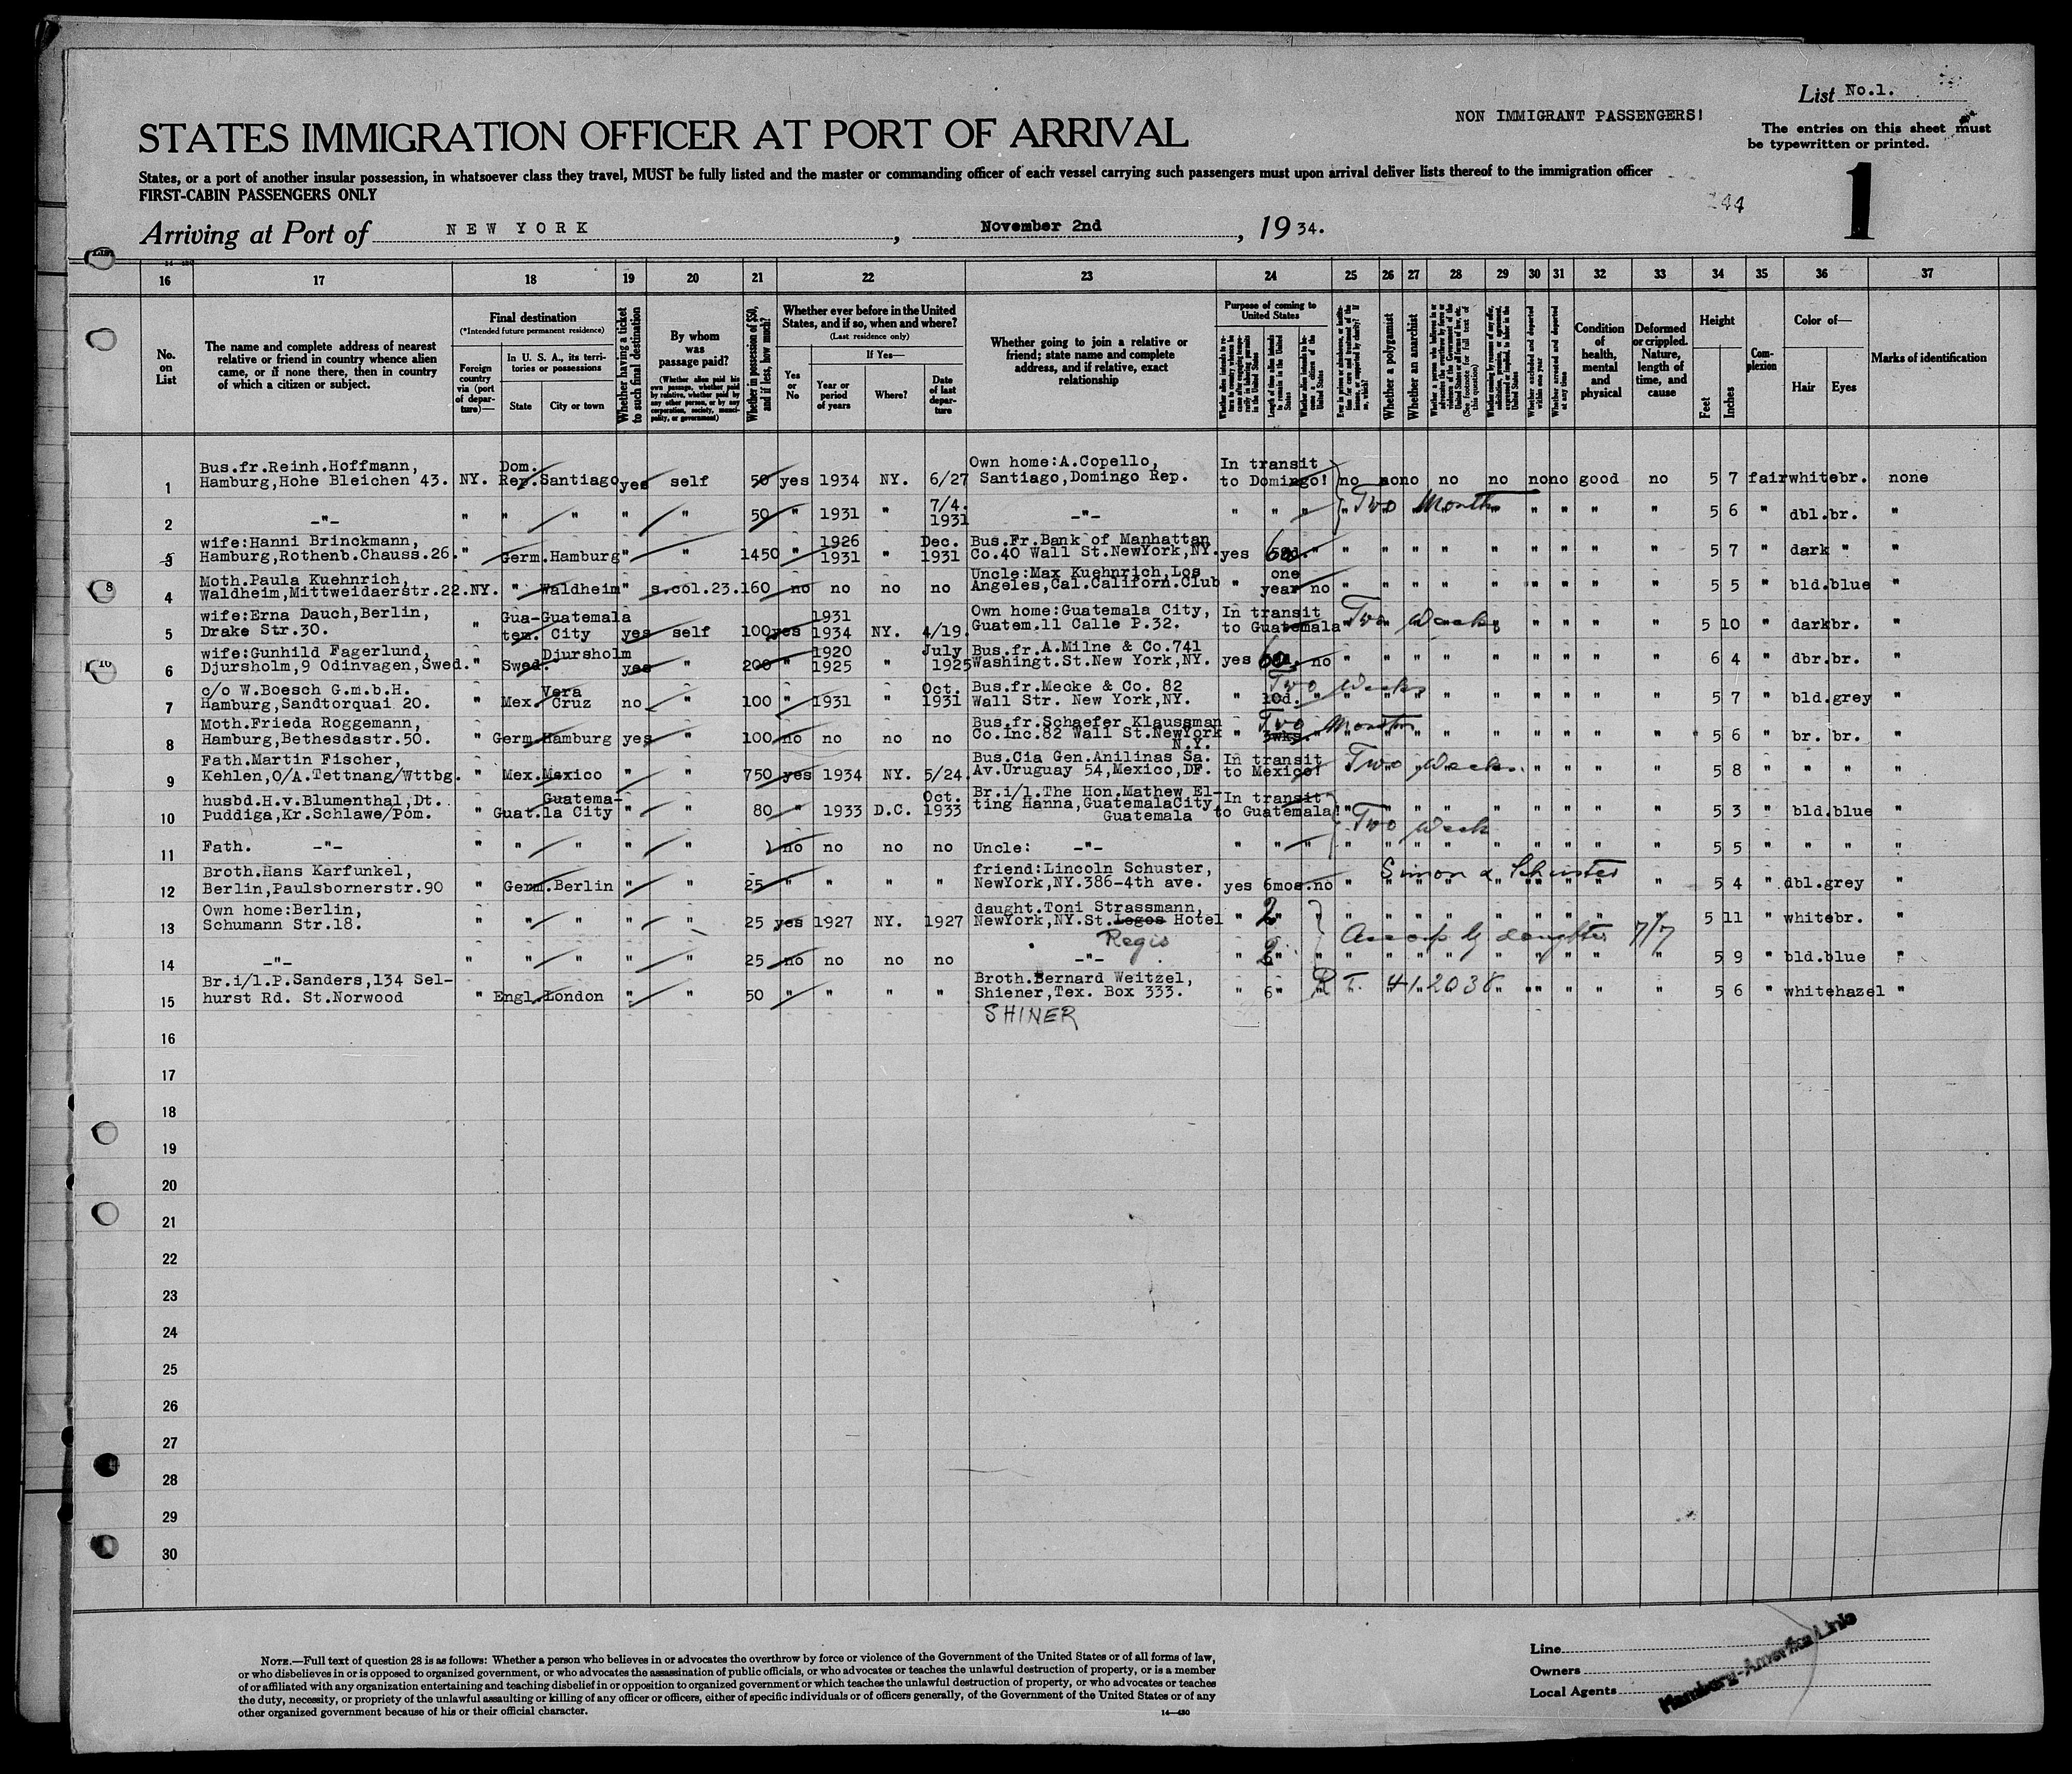 List No.1.
NON IMMIGRANT PASSENGERS!
STATES IMMIGRATION OFFICER AT PORT OF ARRIVAL
The entries on this sheet must
be typewritten or printed.
States, or a port of another insular possession, in whatsoever class they travel, MUST be fully listed and the master or commanding officer of each vessel carrying such passengers must upon arrival deliver lists thereof to the immigration officer
FIRST-CABIN PASSENGERS ONLY
1
244
Arriving at Port of NEW YORK, November 2nd, 1934.
16 17 18 19 20 21 22 23 24 25 26 27 28 29 30 31 32 33 34 35 36 37
No. on List
The name and complete address of nearest relative or friend in country whence alien came, or if none there, then in country of which a citizen or subject.
Final destination
(*Intended future permanent residence)
Foreign country via (port of departure)—
In U. S. A., its territories or possessions
State
City or town
Whether having a ticket to such final destination
By whom was passage paid?
(Whether alien paid his own passage, whether paid by relative, whether paid by any other person, or by any corporation, society, municipality, or government)
Whether in possession of $50, and if less, how much?
Whether ever before in the United States, and if so, when and where?
(Last residence only)
If Yes—
Yes or No
Year or period of years
Where?
Date of last departure
Whether going to join a relative or friend; state name and complete address, and if relative, exact relationship
Purpose of coming to United States
Length of time alien intends to remain in the United States
Whether a polygamist
Whether an anarchist
(See footnote for full text of this question)
Whether excluded and deported within one year
Whether arrested and deported at any time
Condition of health, mental and physical
Deformed or crippled. Nature, length of time, and cause
Height
Feet
Inches
Complexion
Color of—
Hair
Eyes
Marks of identification
1 Bus.fr.Reinh.Hoffmann, Hamburg,Hohe Bleichen 43. NY. Dom. Rep. Santiago yes self 50 yes 1934 NY. 6/27 Own home:A.Copello, Santiago,Domingo Rep. In transit to Domingo! no no no no no no no good no 5 7 fair white br. none
2 -"- " " " " " 50 " 1931 " 7/4. 1931 -"- " " " " Two Months " " " " " 5 6 " dbl. br. "
3 wife:Hanni Brinckmann, Hamburg,Rothenb.Chauss.26. " Germ. Hamburg " " 1450 " 1926 1931 " Dec. 1931 Bus.Fr.Bank of Manhattan Co.40 Wall St.NewYork,NY. yes " " " " " " " " " " 5 7 " dark " "
4 Moth.Paula Kuehnrich, Waldheim,Mittweidaerstr.22. NY. " Waldheim " s.col.23. 160 no no no no Uncle:Max Kuehnrich,Los Angeles,Cal.Californ.Club " one year no " " " " " " " " " 5 5 " bld. blue "
5 wife:Erna Dauch,Berlin, Drake Str.30. " Guatem. Guatemala City yes self 100 yes 1931 1934 NY. 4/19. Own home:Guatemala City, Guatem.11 Calle P.32. In transit to Guatemala Two Weeks " " " " " 5 10 " dark br. "
6 wife:Gunhild Fagerlund, Djursholm,9 Odinvagen,Swed. " Swed. Djursholm yes " 200 " 1920 1925 " July 1925 Bus.fr.A.Milne & Co.741 Washingt.St.New York,NY. yes no " " " " " " " " " 6 4 " dbr. br. "
7 c/o W.Boesch G.m.b.H. Hamburg,Sandtorquai 20. " Mex. Vera Cruz no " 100 " 1931 " Oct. 1931 Bus.fr.Mecke & Co. 82 Wall Str. New York,NY. " 10d. Two Weeks " " " " " " " " 5 7 " bld. grey "
8 Moth.Frieda Roggemann, Hamburg,Bethesdastr.50. " Germ. Hamburg yes " 100 no no no no Bus.fr.Schaefer Klaussman Co.Inc.82 Wall St.NewYork N.Y. " 3wks. Two Months " " " " " " " 5 6 " br. br. "
9 Fath.Martin Fischer, Kehlen,O/A.Tettnang/Wttbg. " Mex. Mexico " " 750 yes 1934 NY. 5/24. Bus.Cia Gen.Anilinas Sa. Av.Uruguay 54,Mexico,DF. In transit to Mexico! Two Weeks " " " " 5 8 " " " "
10 husbd.H.v.Blumenthal,Dt. Puddiga,Kr.Schlawe/Pom. " Guat. Guatemala City " " 80 " 1933 D.C. Oct. 1933 Br.i/l.The Hon.Mathew Elting Hanna,GuatemalaCity, Guatemala In transit to Guatemala! " " " " " " " " " 5 3 " bld. blue "
Two Week
11 Fath. -"- " " " " " no no no no Uncle: -"- " " " " " " " " " " " " 5 5 " " " "
12 Broth.Hans Karfunkel, Berlin,Paulsbornerstr.90 " Germ. Berlin " " 25 " " " " friend:Lincoln Schuster, NewYork,NY.386-4th ave. yes 6mos. no " Simon & Schuster " " " 5 4 " dbl. grey "
13 Own home:Berlin, Schumann Str.18. " " " " " 25 yes 1927 NY. 1927 daught.Toni Strassmann, NewYork,NY.St.Logos Hotel " 2 " " " " " " " " " " 5 11 " white br. "
Regis
daughter 7/7
14 -"- " " " " " 25 no no no no -"- " 2 " " " " " " " " " " 5 9 " bld. blue "
15 Br.i/l.P.Sanders,134 Selhurst Rd. St.Norwood " Engl. London " " 50 " " " " Broth.Bernard Weitzel, Shiener,Tex. Box 333. " 6" R T. 412038 " " " " " 5 6 " white hazel "
SHINER
16
17
18
19
20
21
22
23
24
25
26
27
28
29
30
NOTE.—Full text of question 28 is as follows: Whether a person who believes in or advocates the overthrow by force or violence of the Government of the United States or of all forms of law,
or who disbelieves in or is opposed to organized government, or who advocates the assassination of public officials, or who advocates or teaches the unlawful destruction of property, or is a member
of or affiliated with any organization entertaining and teaching disbelief in or opposition to organized government or which teaches the unlawful destruction of property, or who advocates or teaches
the duty, necessity, or propriety of the unlawful assaulting or killing of any officer or officers, either of specific individuals or of officers generally, of the Government of the United States or of any
other organized government because of his or their official character.
14—430
Line
Owners
Local Agents
Hamburg-Amerika Linie